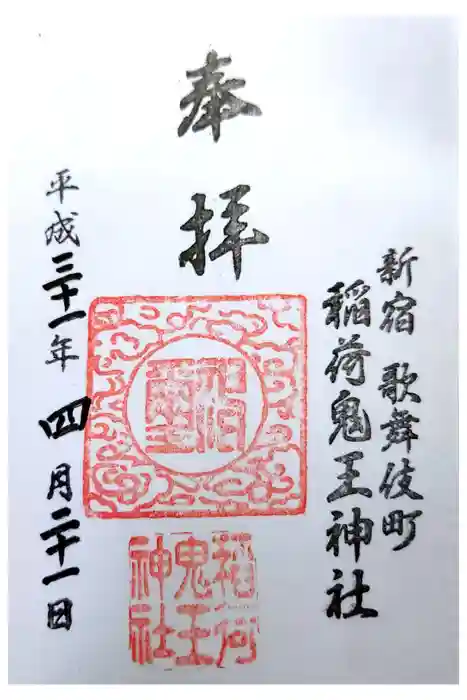 奉拝
新宿 歌舞伎町
稲荷鬼王神社
稲荷
鬼王
神社
平成三十一年 四月二十一日